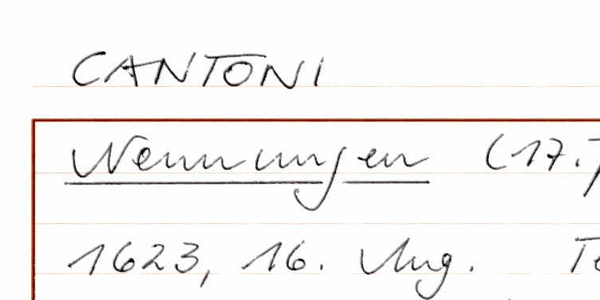 CANTONI
Nennungen (17.
1623, 16. Aug. Te